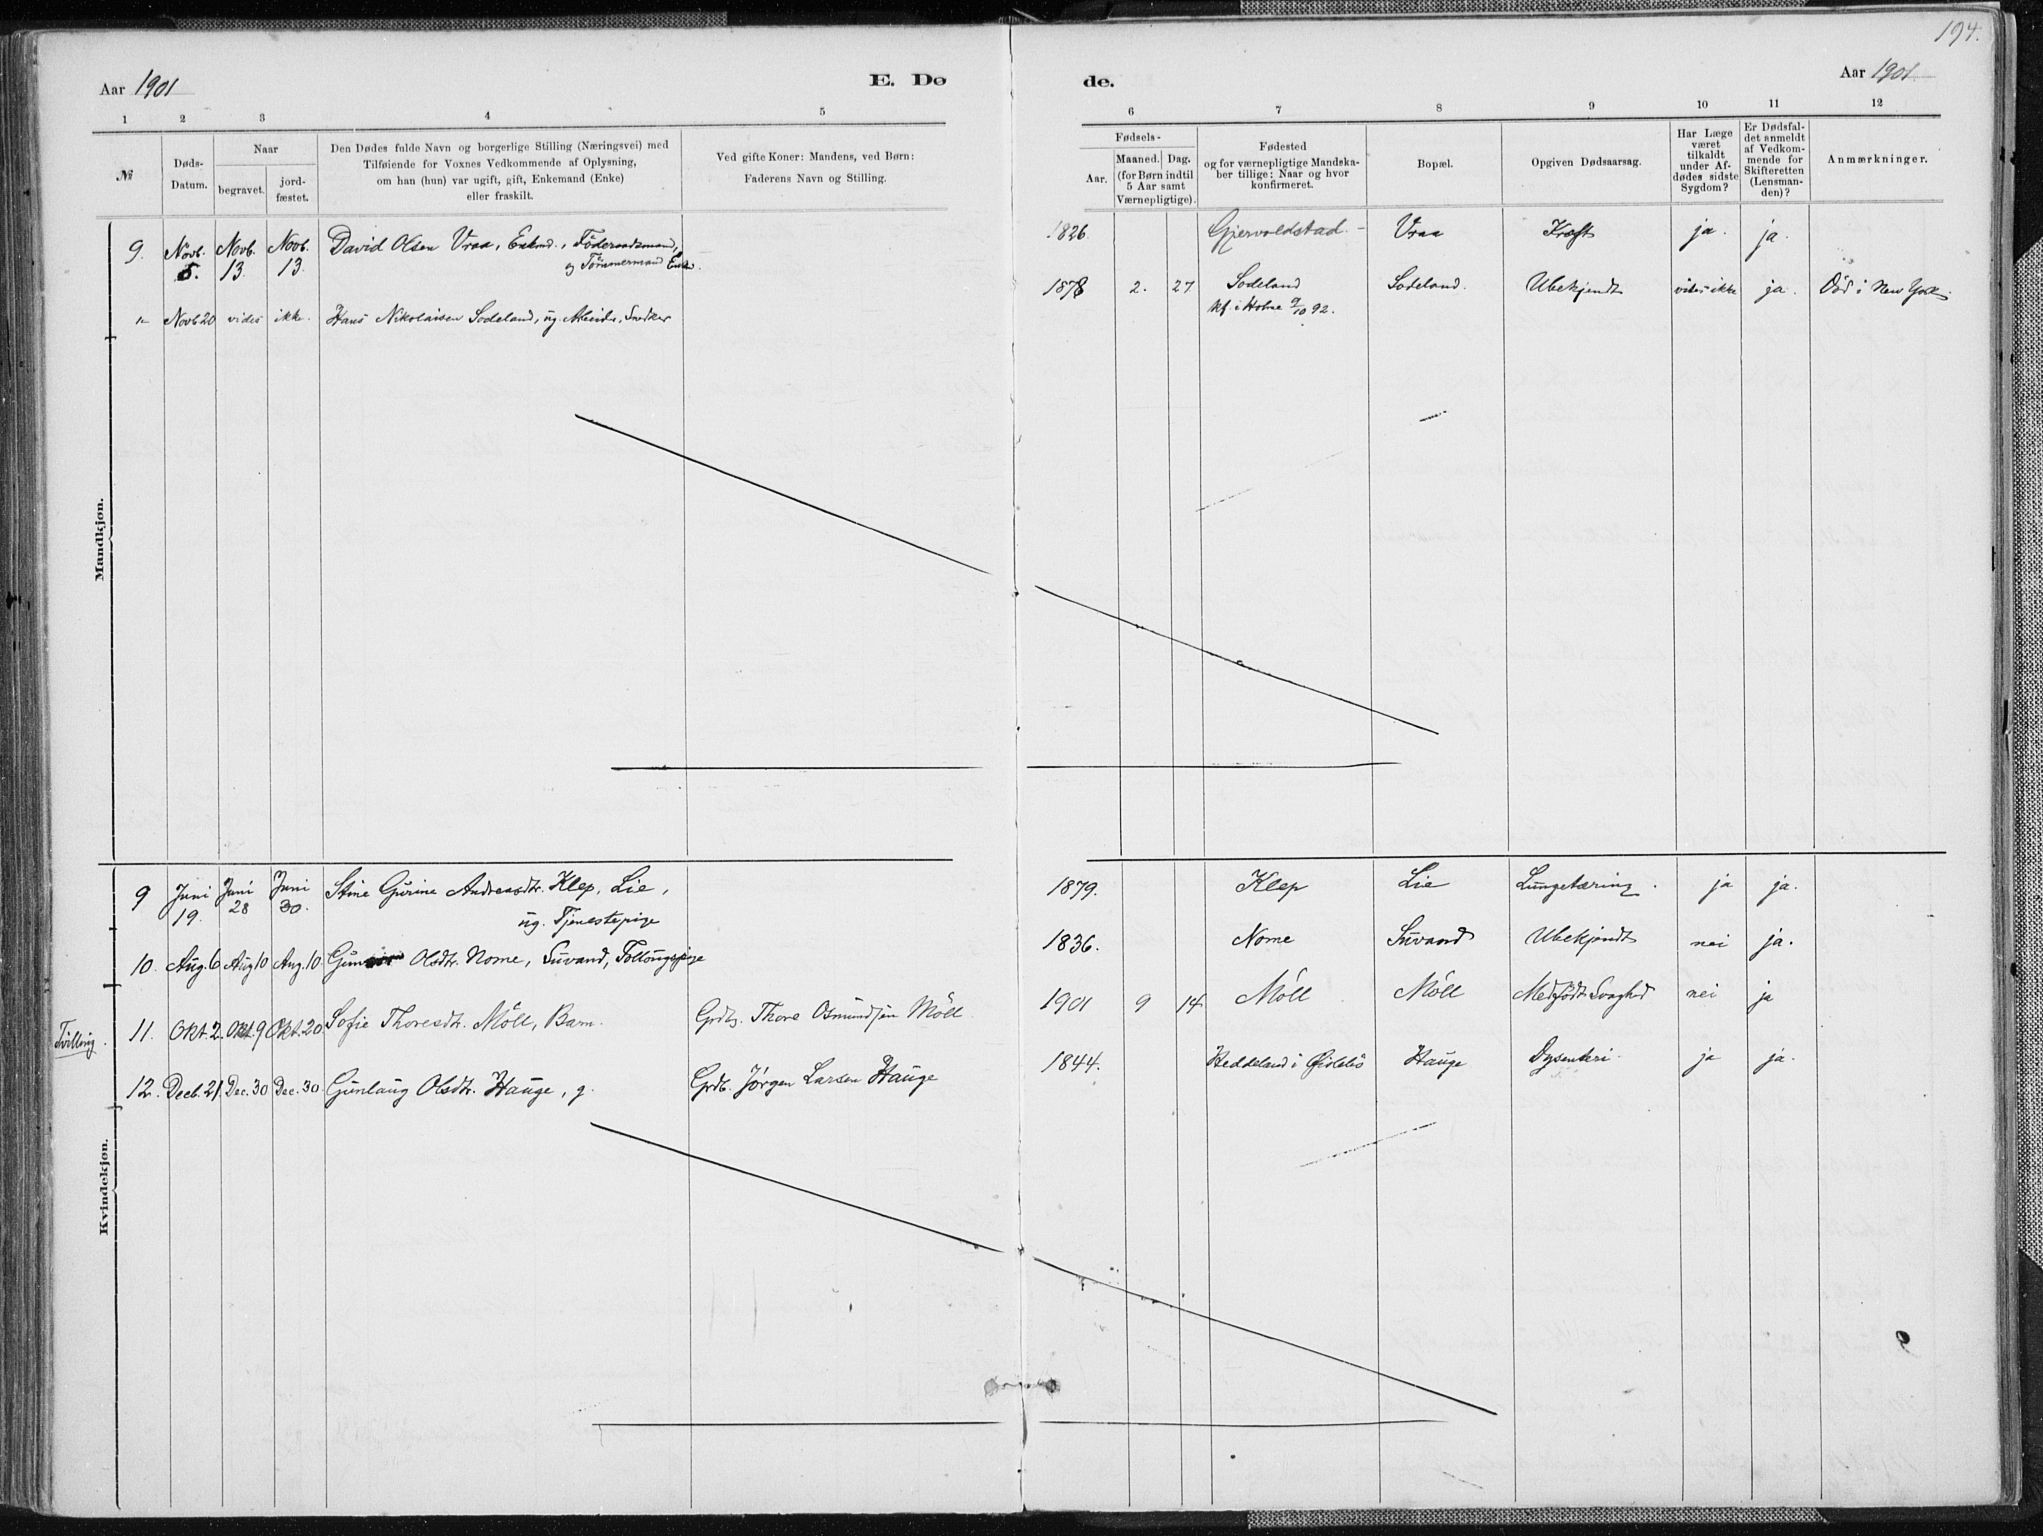 194.
Aar 1901
E. Dø de.
Aar 1901.
1 2 3 4 5 6 7 8 9 10 11 12
№
Døds-
Datum.
Naar
begravet.
jord-
fæstet.
Den Dødes fulde Navn og borgerlige Stilling (Næringsvei) med
Tilføiende for Voxnes Vedkommende af Oplysning,
om han (hun) var ugift, gift, Enkemand (Enke)
eller fraskilt.
Ved gifte Koner: Mandens, ved Børn:
Faderens Navn og Stilling.
Fødsels-
Aar.
Maaned. Dag.
(for Børn indtil
5 Aar samt
Værnepligtige).
Fødested
og for værnepligtige Mandska-
ber tillige: Naar og hvor
konfirmeret.
Bopæl.
Opgiven Dødsaarsag.
Har Læge
været
tilkaldt
under Af-
dødes sidste
Sygdom?
Er Dødsfal-
det anmeldt
af Vedkom-
mende for
Skifteretten
(Lensman-
den)?
Anmærkninger.
Mandkjøn.
9. Novb. 5. Novb. 13. Novb. 13. David Olsen Vraa, Enkmd., Föderaadsmand,
og Tömmermand
1826. Gjervoldstad. Vraa Kræft ja. ja.
" Novb 20 vides ikke. Hans Nikolaisen Sodeland, ug. Arbeider, Snedker
1878 2. 27 Sodeland Sodeland. Ubekjendt vides ikke ja. Död i New York.
kf. i Holme 9/10 92.
Kvindekjøn.
9 Juni 19. Juni 28 Juni 30. Stine Gurine Andreasdtr. Klep, Lie,
ug. Tjenestepige
1879. Klep Lie Lungetæring. ja ja.
10. Aug. 6 Aug 10 Aug. 10 Olsdtr. Nome, Suvand,
1836. Nome Suvand Ubekjendt nei ja.
Tvilling.
11. Okt. 2. Okt. 9 Okt. 20 Sofie Thoresdtr. Möll, Barn. Grdbg. Thore Osmundsen Möll
1901 9 14 Möll Möll Medfödt Svaghed nei ja
12. Decb. 21. Dec. 30 Dec. 30 Gunlaug Olsdtr. Hauge, g. Grdb. Jørgen Larsen Hauge
1844. Heddeland i Øislebö Hauge Dysenteri ja ja.